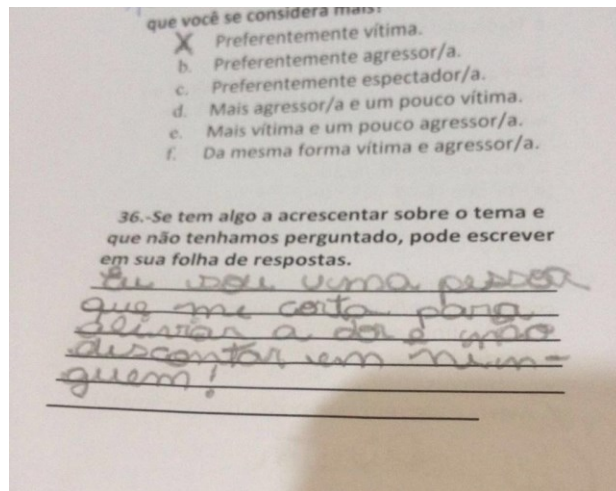 que você se considera mais?
X Preferentemente vítima.
b. Preferentemente agressor/a.
c. Preferentemente espectador/a.
d. Mais agressor/a e um pouco vítima.
e. Mais vítima e um pouco agressor/a.
f. Da mesma forma vítima e agressor/a.
36.-Se tem algo a acrescentar sobre o tema e
que não tenhamos perguntado, pode escrever
em sua folha de respostas.
Eu sou uma pessoa
que me corta para
aliviar a dor e não
descontar em nin-
guem!